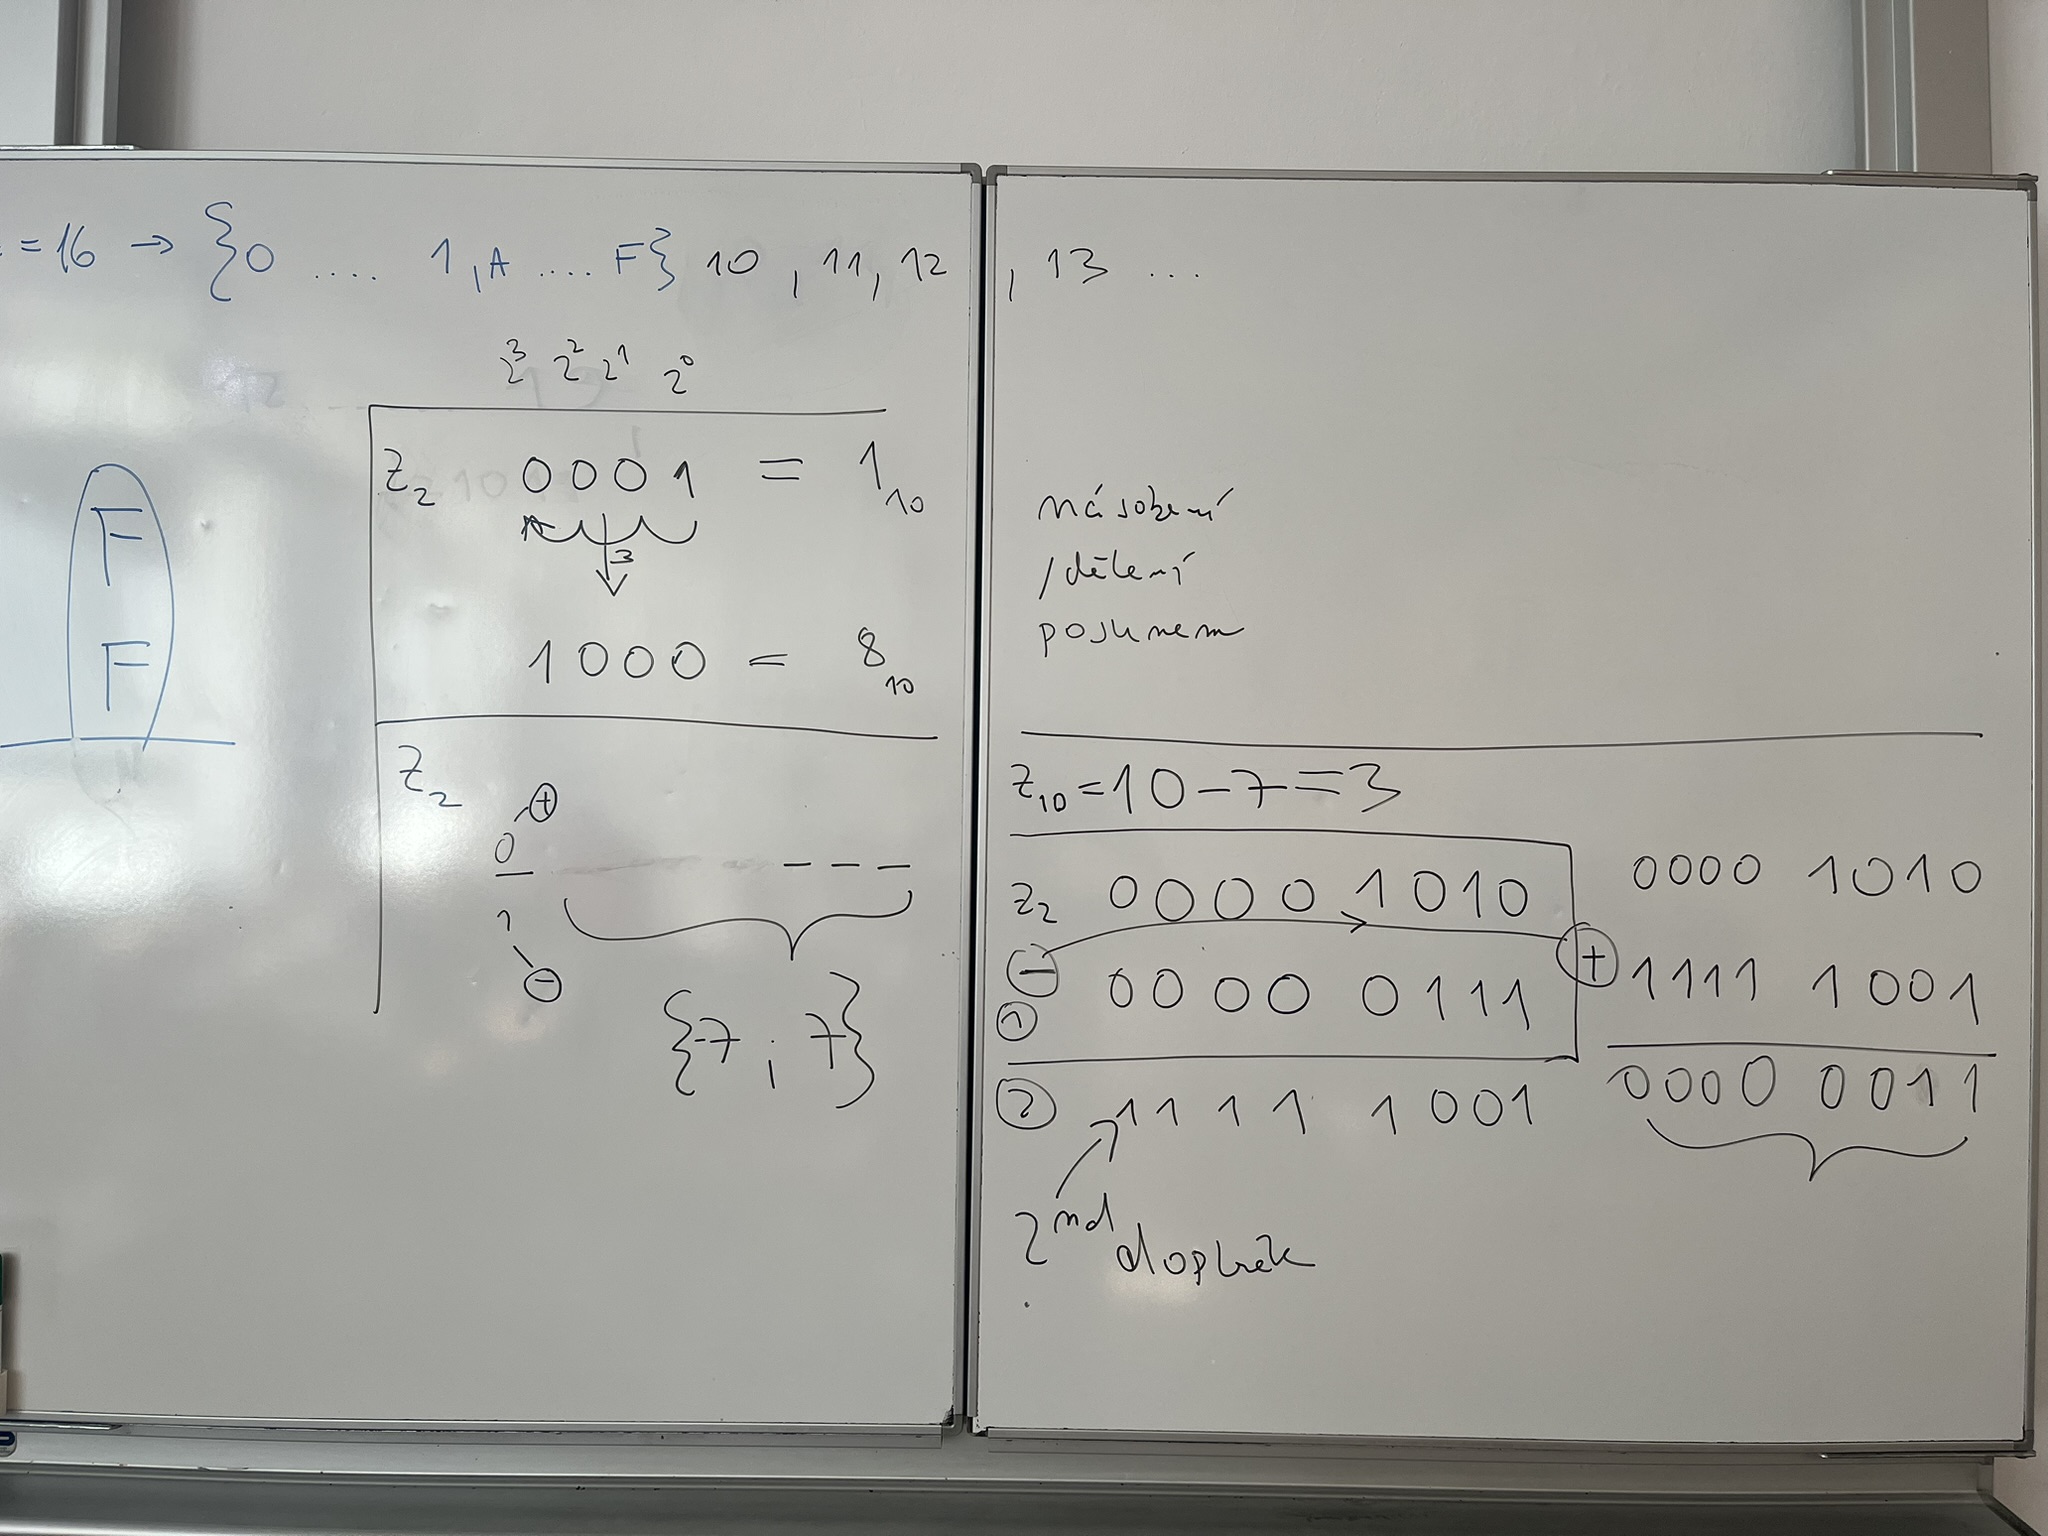 = 16 → {0 .... 1, A .... F} 10, 11, 12, 13 ...
2³ 2² 2¹ 2⁰
Z₂ 0001 = 1₁₀
3
1000 = 8₁₀
F
F
Z₂
0 +
_ _ _ _
1 -
{-7 ; 7}
násobení
/dělení
posunem
Z₁₀ = 10 - 7 = 3
Z₂ 0000 1010
- 0000 0111
1
2 1111 1001
2ⁿᵈ doplněk
0000 1010
+ 1111 1001
0000 0011